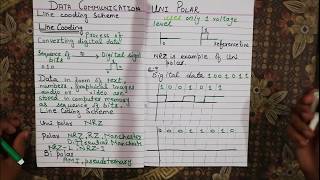 DATA COMMUNICATION
Line coading scheme
Line Coading
Process of
Converting digital data
Sequence of → Digital signal
bits
010
Data in form of text,
numbers, graphical images
and/or video are
stored in computer memory
as sequence of bits.
Line Coding Scheme
Uni polar NRZ
Polar NRZ, RZ, Manchester
Differential Manchester
NRZ-L NRZ-I
Bi polar
AMI, pseudoternary
UNI POLAR
uses only 1 voltage
level
reference line
NRZ is example of Uni
polar
Digital data 1001011
1 0 0 1 0 1 1
1 0 0 1 0 1 1